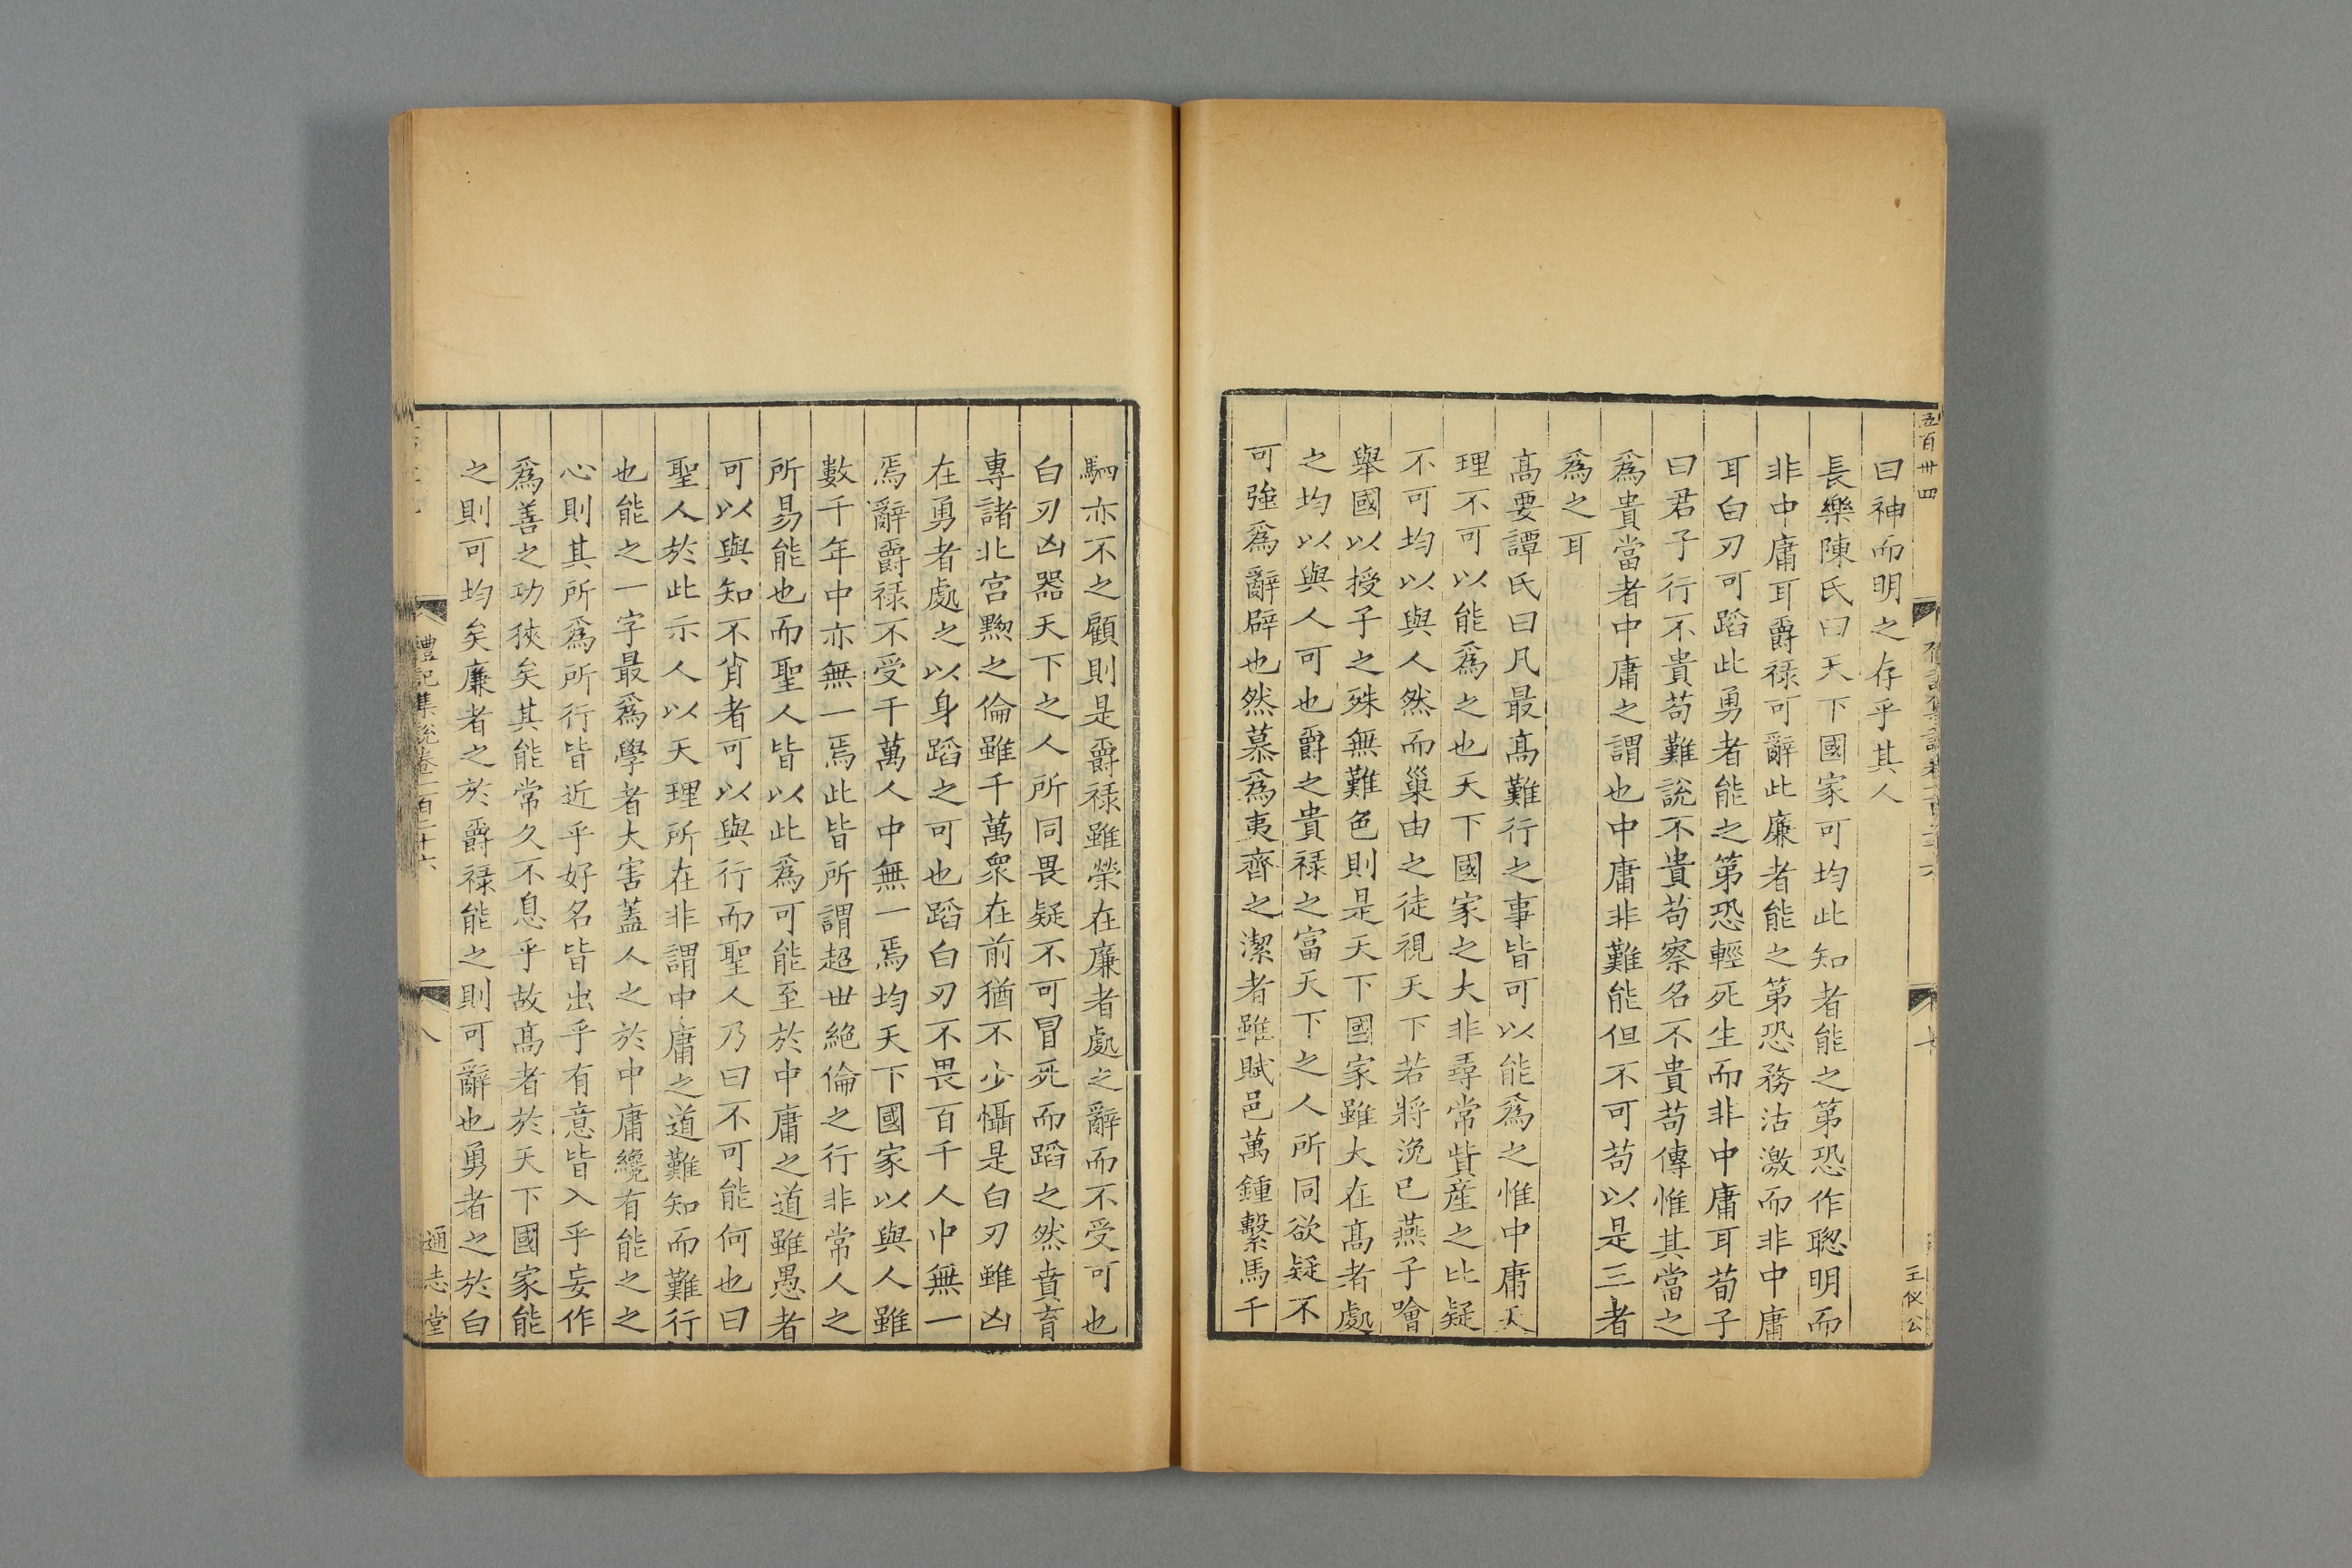 五百卅四
王儀公
曰神而明之存乎其人
長樂陳氏曰天下國家可均此知者能之第恐作聦明而
非中庸耳爵禄可辭此廉者能之第恐務沽激而非中庸
耳白刃可蹈此勇者能之第恐輕死生而非中庸耳荀子
曰君子行不貴苟難說不貴苟察名不貴苟傳惟其當之
爲貴當者中庸之謂也中庸非難能但不可苟以是三者
爲之耳
髙要譚氏曰凡最髙難行之事皆可以能爲之惟中庸天
理不可以能爲之也天下國家之大非尋常貲産之比疑
不可均以與人然而巢由之徒視天下若將浼已燕子噲
舉國以授子之殊無難色則是天下國家雖大在髙者處
之均以與人可也爵之貴禄之富天下之人所同欲疑不
可強爲辭辟也然慕爲夷齊之潔者雖賦邑萬鍾繫馬千
駟亦不之顧則是爵禄雖榮在廉者處之辭而不受可也
白刃凶器天下之人所同畏疑不可冒死而蹈之然賁育
專諸北宫黝之倫雖千萬衆在前猶不少懾是白刃雖凶
在勇者處之以身蹈之可也蹈白刃不畏百千人中無一
焉辭爵禄不受千萬人中無一焉均天下國家以與人雖
數千年中亦無一焉此皆所謂超世絶倫之行非常人之
所易能也而聖人皆以此爲可能至於中庸之道雖愚者
可以與知不肖者可以與行而聖人乃曰不可能何也曰
聖人於此示人以天理所在非謂中庸之道難知而難行
也能之一字最爲學者大害蓋人之於中庸纔有能之之
心則其所爲所行皆近乎好名皆出乎有意皆入乎妄作
爲善之功狹矣其能常久不息乎故髙者於天下國家能
之則可均矣廉者之於爵禄能之則可辭也勇者之於白
禮記集說卷一百二十六
八
通志堂